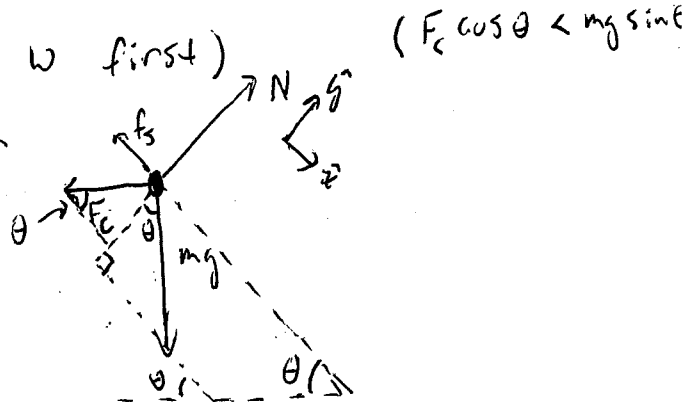 w first)
(F_c cos θ < mg sin θ
N
ŷ
f_s
x̂
θ
F_c
θ
mg
θ
θ